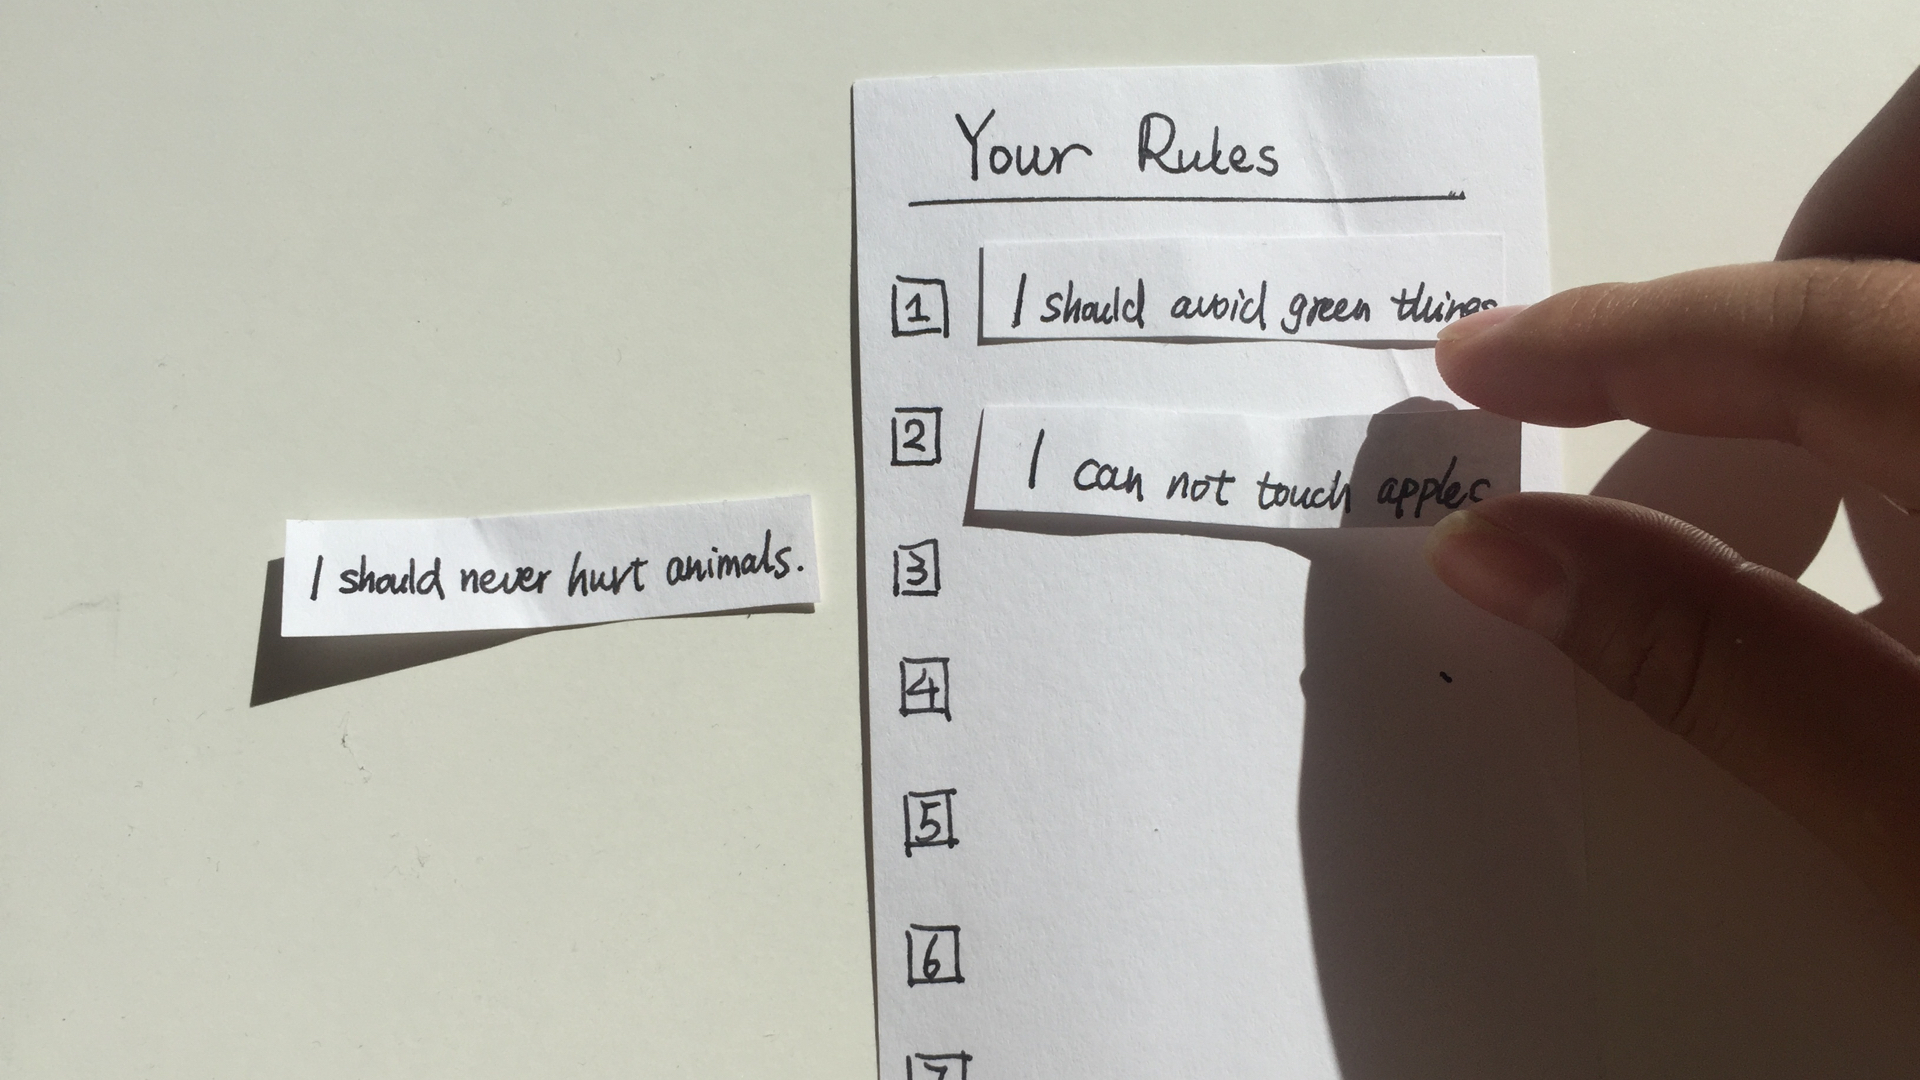 Your Rules
1 I should avoid green things
2 I can not touch apples
I should never hurt animals.
3
4
5
6
7